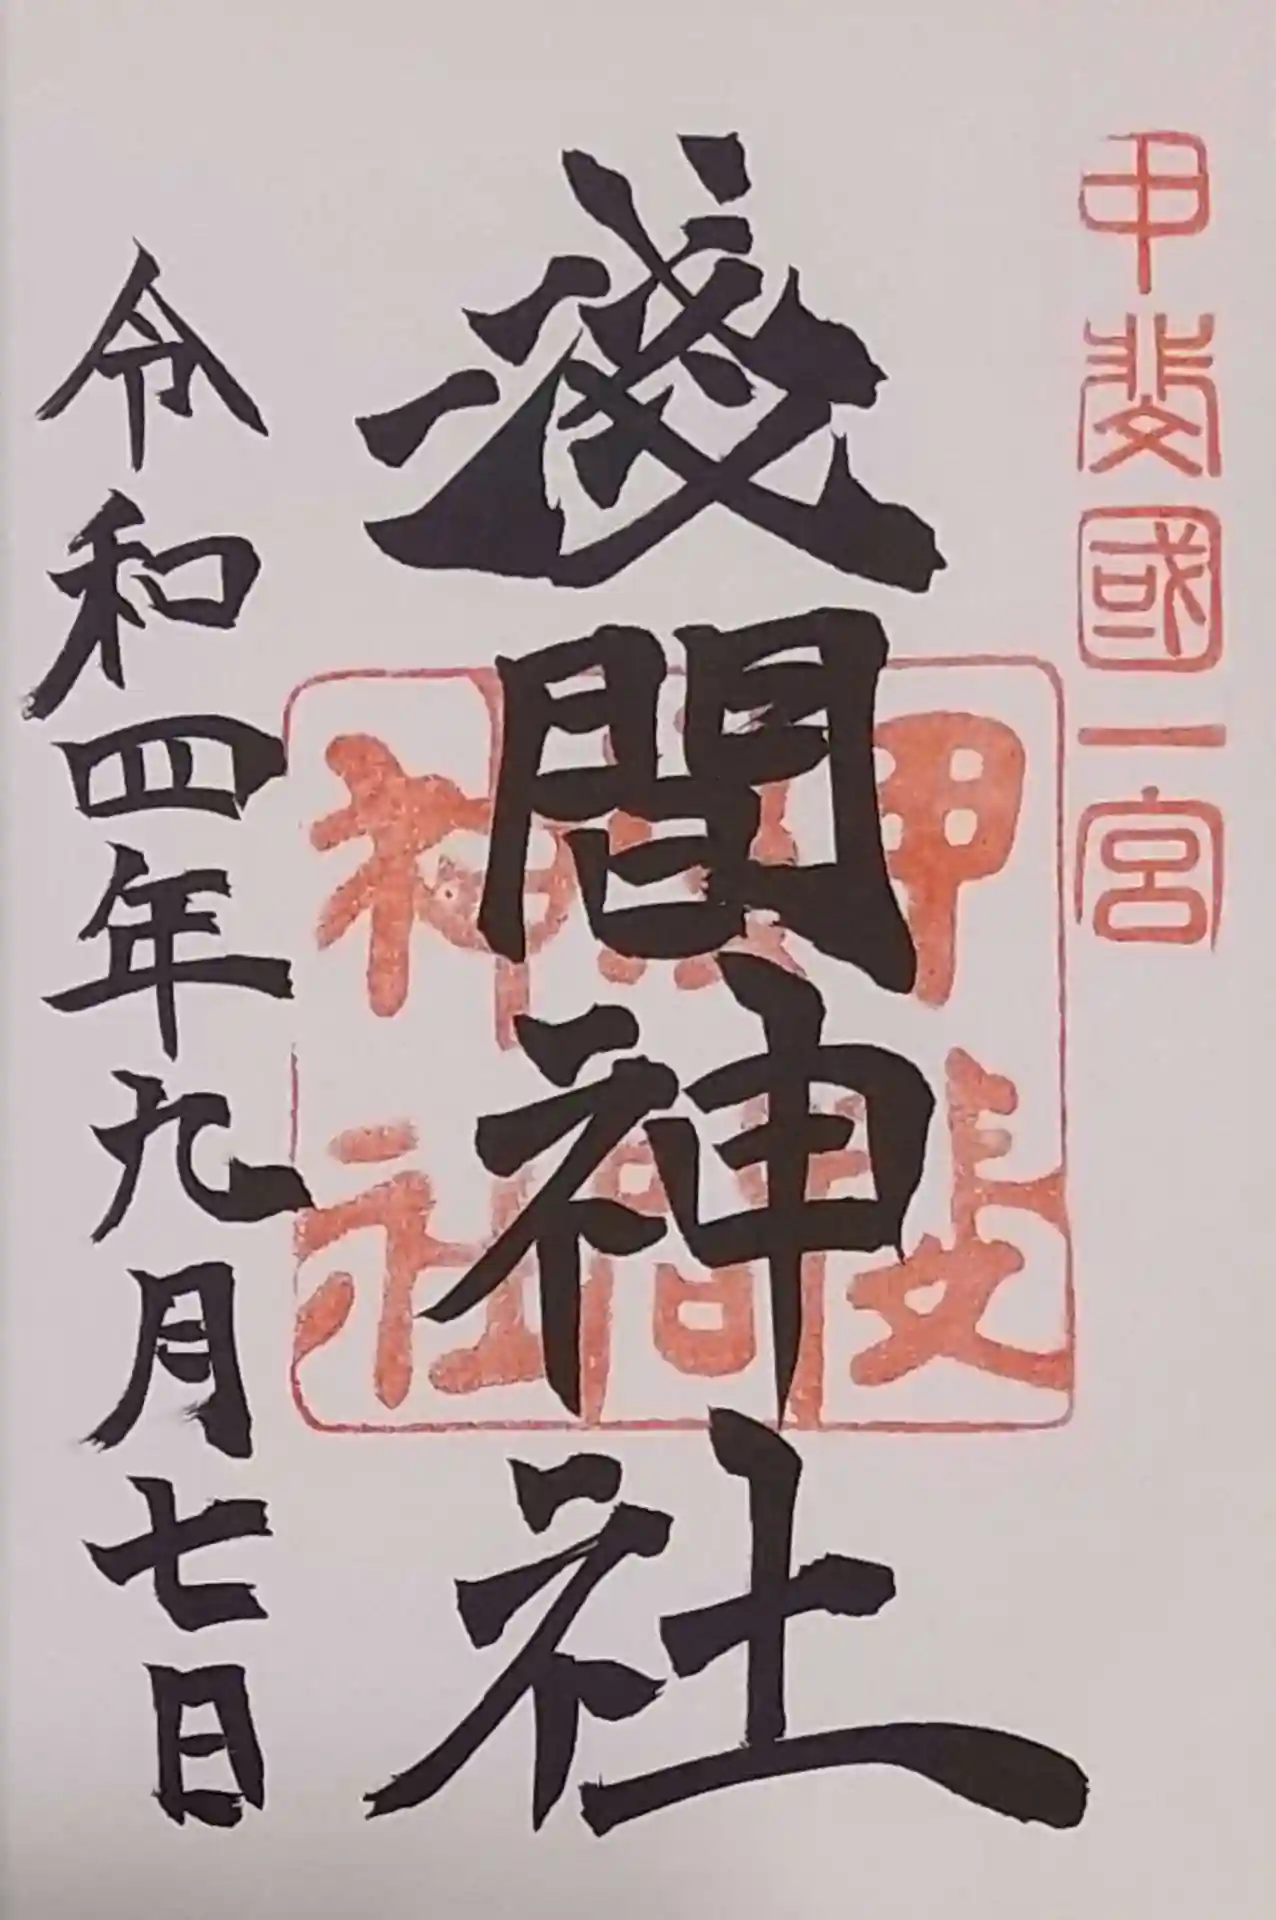 甲斐國一宮
淺間神社
令和四年九月七日